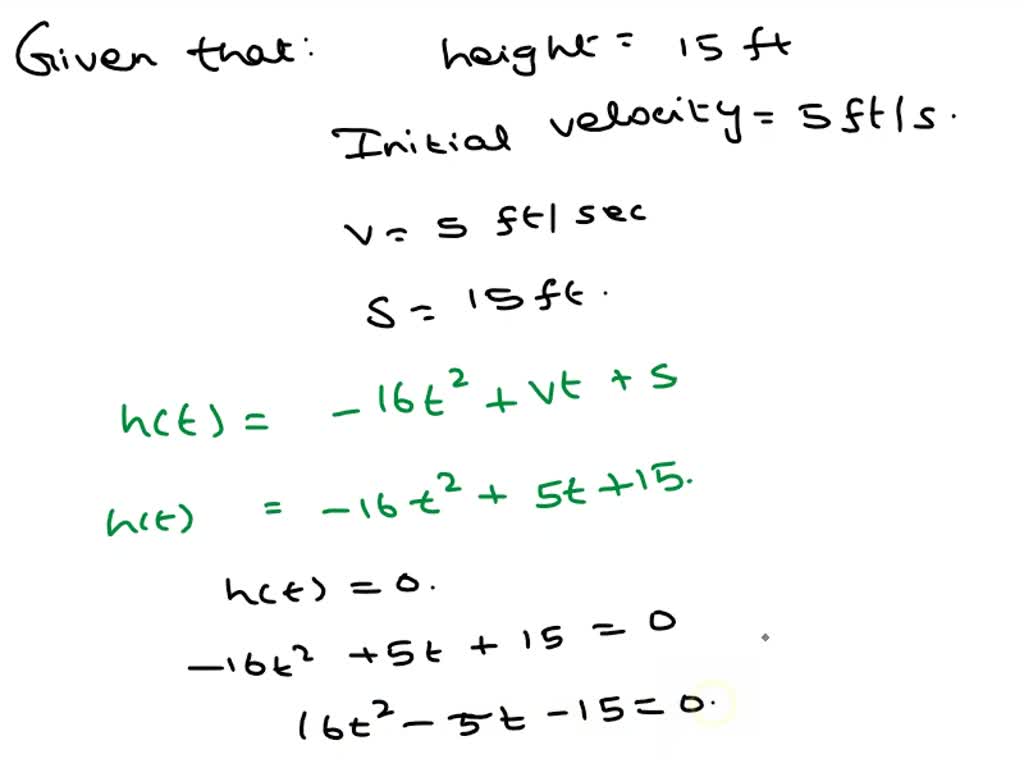 Given that: height = 15 ft
Initial velocity = 5 ft/s.
v = 5 ft/sec
S = 15 ft.
h(t) = -16t² + vt + s
h(t) = -16t² + 5t + 15.
h(t) = 0.
-16t² + 5t + 15 = 0
16t² - 5t - 15 = 0.